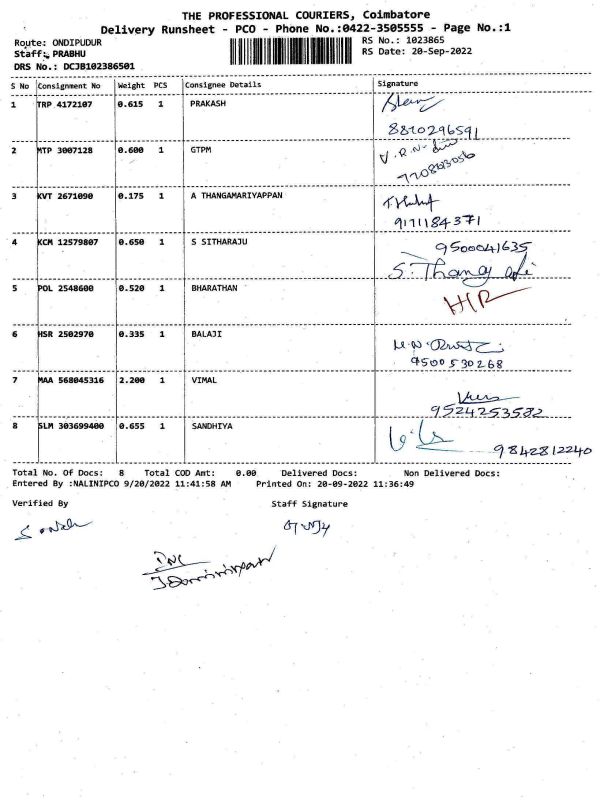 THE PROFESSIONAL COURIERS, Coimbatore
Delivery Runsheet - PCO - Phone No.:0422-3505555 - Page No.:1
Route: ONDIPUDUR RS No.: 1023865
Staff: PRABHU RS Date: 20-Sep-2022
DRS No.: DCJB102386501
S No Consignment No Weight PCS Consignee Details Signature
1 TRP 4172107 0.615 1 PRAKASH
8870296591
2 MTP 3007128 0.600 1 GTPM V.R.N-
3 KVT 2671090 0.175 1 A THANGAMARIYAPPAN
9171184371
4 KCM 12579807 0.650 1 S SITHARAJU 9500041635
S. Thang
5 POL 2548600 0.520 1 BHARATHAN HR
6 HSR 2502970 0.335 1 BALAJI
9500530268
7 MAA 568045316 2.200 1 VIMAL
9524253582
8 SLM 303699400 0.655 1 SANDHIYA
9842812240
Total No. Of Docs: 8 Total COD Amt: 0.00 Delivered Docs: Non Delivered Docs:
Entered By :NALINIPCO 9/20/2022 11:41:58 AM Printed On: 20-09-2022 11:36:49
Verified By Staff Signature